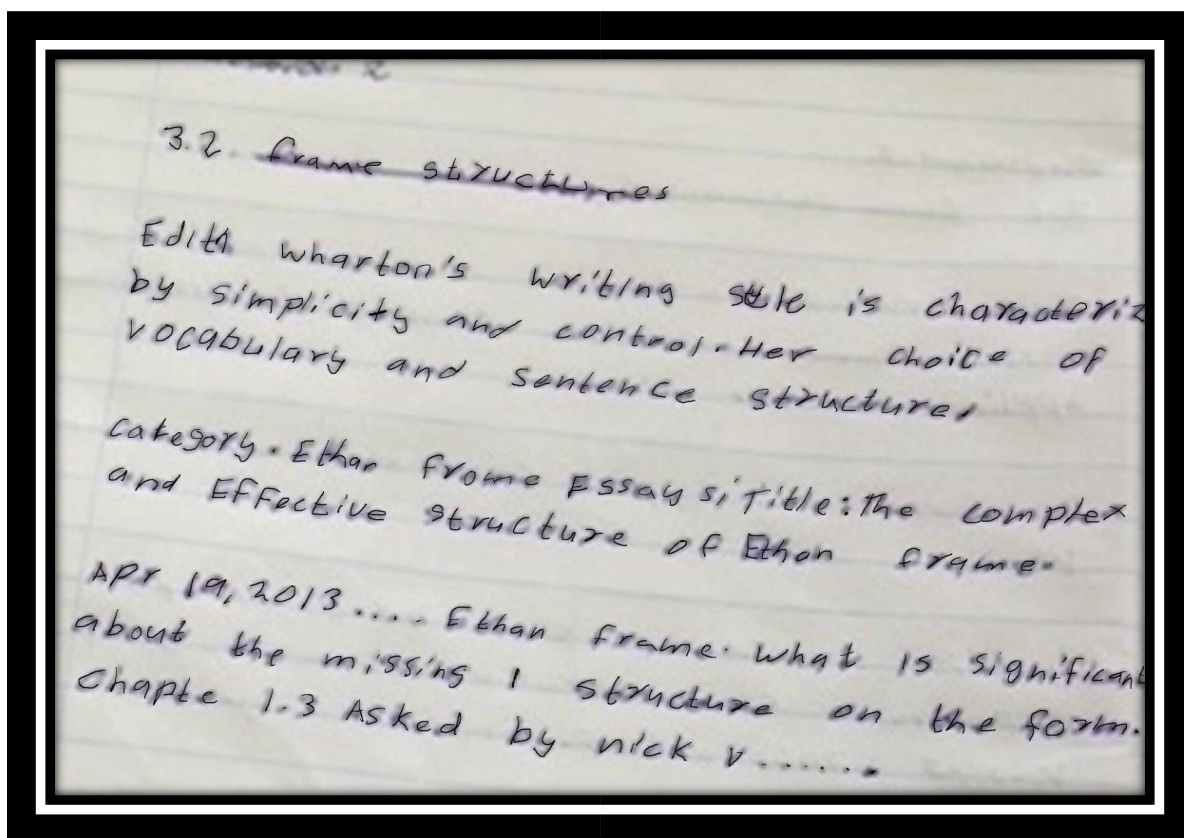 2
3.2. frame structures
Edith wharton's writing style is characteriz
by simplicity and control. Her choice of
vocabulary and sentence structure,
category. Ethan frome Essay si Title: the complex
and Effective structure of Ethan frame.
Apr 19, 2013 .... Ethan frame. what is significant
about the missing 1 structure on the form.
Chapte 1.3 Asked by nick v ......